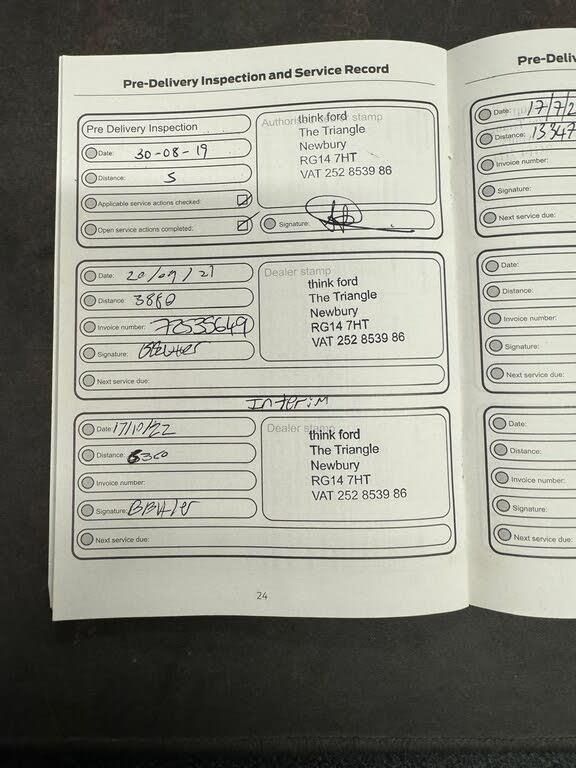 Pre-Delivery Inspection and Service Record
Pre Delivery Inspection
Date: 30-08-19
Distance: 5
Applicable service actions checked:
Open service actions completed:
think ford
The Triangle
Newbury
RG14 7HT
VAT 252 8539 86
Signature:
Date: 20/09/21
Distance: 3880
Invoice number: 73535649
Signature:
Next service due:
Dealer stamp
think ford
The Triangle
Newbury
RG14 7HT
VAT 252 8539 86
Interim
Date: 17/10/22
Distance: 6360
Invoice number:
Signature:
Next service due:
Dealer stamp
think ford
The Triangle
Newbury
RG14 7HT
VAT 252 8539 86
24
Date: 17/7/2
Distance: 1334
Invoice number:
Signature:
Next service due:
Date:
Distance:
Invoice number:
Signature:
Next service due:
Date:
Distance:
Invoice number:
Signature:
Next service due: